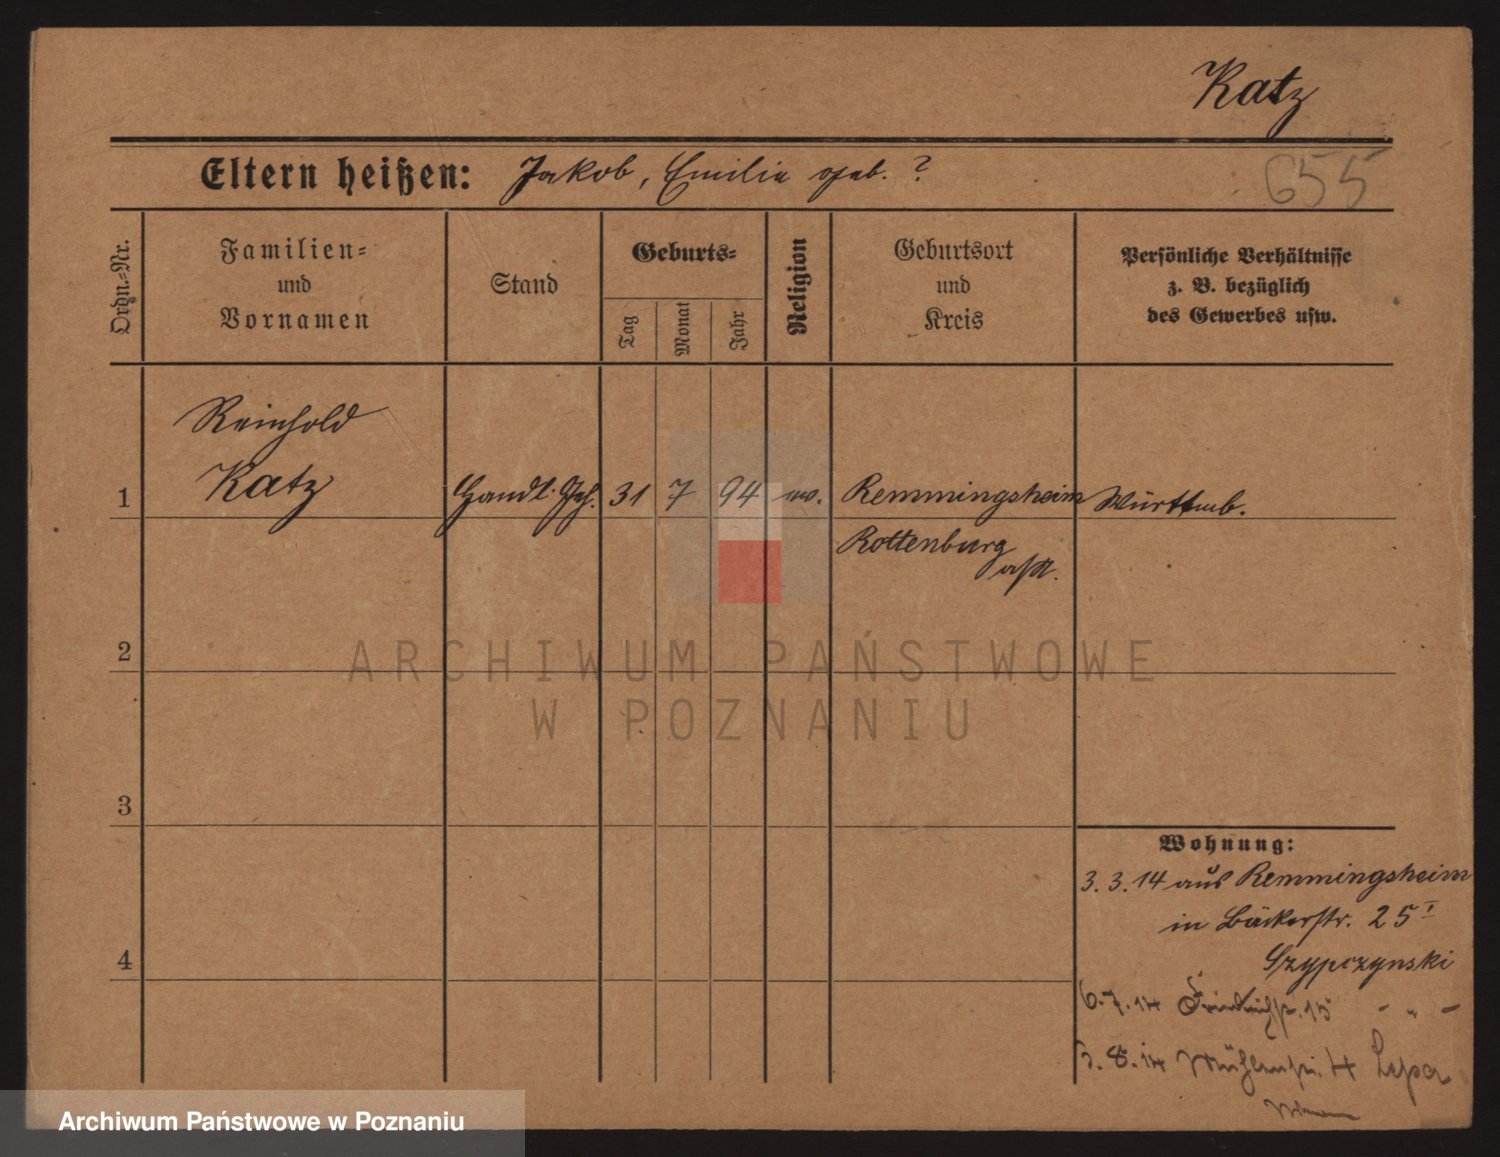 Katz
Eltern heißen: Jakob, Emilie geb. ?
655
Ordn.-Nr.
Familien-
und
Vornamen
Stand
Geburts-
Tag
Monat
Jahr
Religion
Geburtsort
und
Kreis
Persönliche Verhältnisse
z. B. bezüglich
des Gewerbes usw.
Reinhold
1 Katz Handl. Geh. 31 7 94 ev. Remmingsheim Württemb.
Rottenburg
2
ARCHIWUM PAŃSTWOWE
W POZNANIU
3
Wohnung:
3.3.14 aus Remmingsheim
in Bäckerstr. 25 I
4 Szypczynski
6.7.14 Friedrichstr. 15 - " -
8.14 Mühlenstr. 4
Archiwum Państwowe w Poznaniu